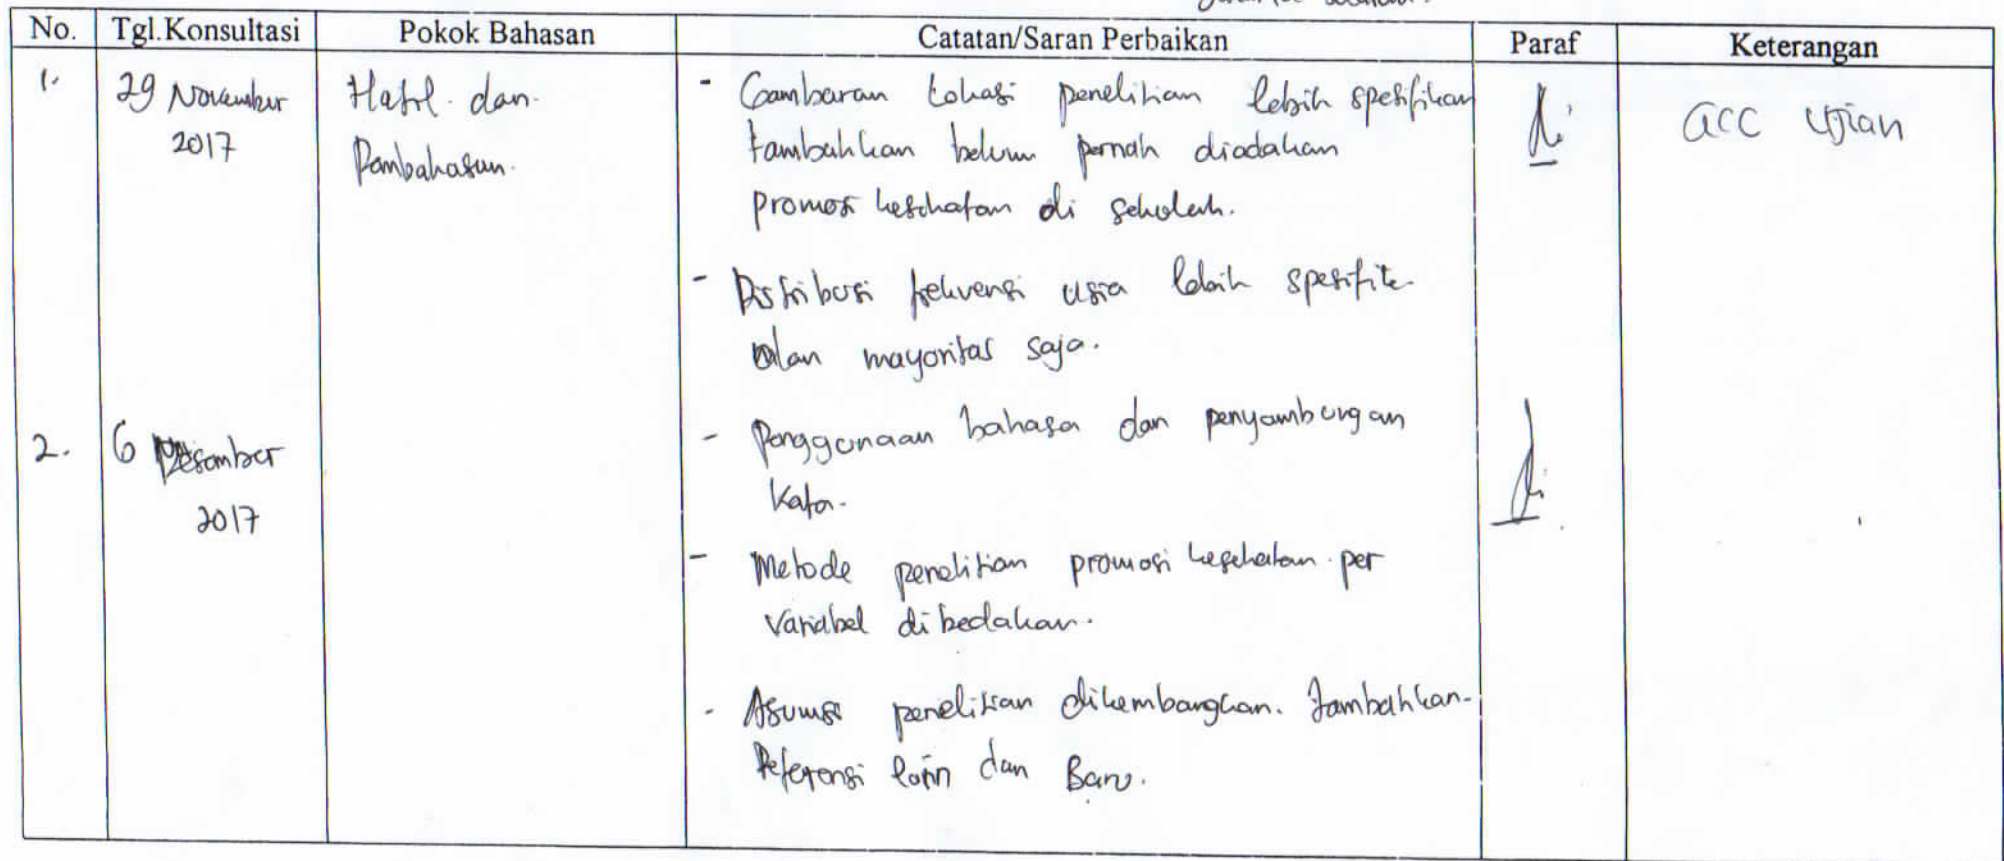 No. Tgl.Konsultasi Pokok Bahasan Catatan/Saran Perbaikan Paraf Keterangan
1. 29 November Hasil dan - Gambaran Lokasi penelitian lebih spesifikan acc Ujian
2017 Pembahasan. tambahkan belum pernah diadakan
promosi kesehatan di sekolah.
- Distribusi frekuensi usia lebih spesifik
dan mayoritas saja.
2. 6 Desember - Penggunaan bahasa dan penyambungan
2017 Kata.
- Metode penelitian promosi kesehatan per
Variabel dibedakan.
- Asumsi penelitian dikembangkan. Tambahkan
Referensi lain dan Baru.